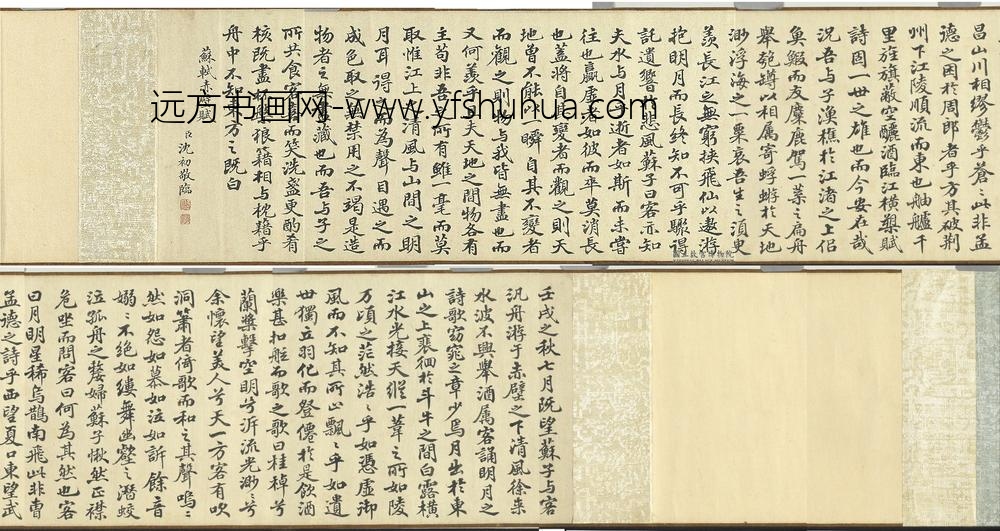 壬戌之秋七月既望蘇子与客
汎舟游于赤壁之下清風徐来
水波不興舉酒属客誦明月之
詩歌窈窕之章少焉月出於東
山之上裵徊於斗牛之間白露横
江水光接天縱一葦之所如陵
万頃之茫然浩〻乎如憑虚御
風而不知其所止飄〻乎如遺
世獨立羽化而登僊於是飲酒
樂甚扣舷而歌之歌曰桂棹兮
蘭槳擊空明兮泝流光渺〻兮
余懷望美人兮天一方客有吹
洞簫者倚歌而和之其聲嗚〻
然如怨如慕如泣如訴餘音
嫋〻不絶如縷舞幽壑之潛蛟
泣孤舟之嫠婦蘇子愀然正襟
危坐而問客曰何為其然也客
曰月明星稀烏鵲南飛此非曹
孟德之詩乎西望夏口東望武
昌山川相繆鬱乎蒼〻此非孟
德之困於周郎者乎方其破荆
州下江陵順流而東也舳艫千
里旌旗蔽空釃酒臨江横槊賦
詩固一世之雄也而今安在哉
况吾与子漁樵於江渚之上侣
魚鰕而友麋鹿駕一葉之扁舟
舉匏罇以相属寄蜉蝣於天地
渺浮海之一粟哀吾生之須臾
羨長江之無窮挾飛仙以遨游
抱明月而長終知不可乎驟得
託遺響於悲風蘇子曰客亦知
夫水与月乎逝者如斯而未嘗
往也贏虚者如彼而卒莫消長
也蓋將自其變者而觀之則天
地曽不能一瞬自其不變者
而觀之則物与我皆無盡也而
又何羨乎且夫天地之間物各有
主苟非吾之所有雖一毫而莫
取惟江上之清風与山間之明
月耳得之而為聲目遇之而
成色取之無禁用之不竭是造
物者之無盡藏也而吾与子之
所共食客喜而笑洗盞更酌肴
核既盡杯盤狼藉相与枕藉乎
舟中不知東方之既白
蘇軾赤壁賦
臣沈初敬臨
远方书画网-www.yfshuhua.com